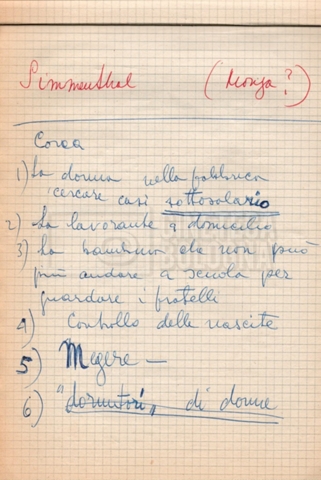 Simmenthal (Monza?)
Corea
1) La donna nella fabbrica
cercare casi sottosalario
2) La lavorante a domicilio
3) La bambina che non può
più andare a scuola per
guardare i fratelli
4) Controllo delle nascite
5) Megere —
6) "dormitori" di donne